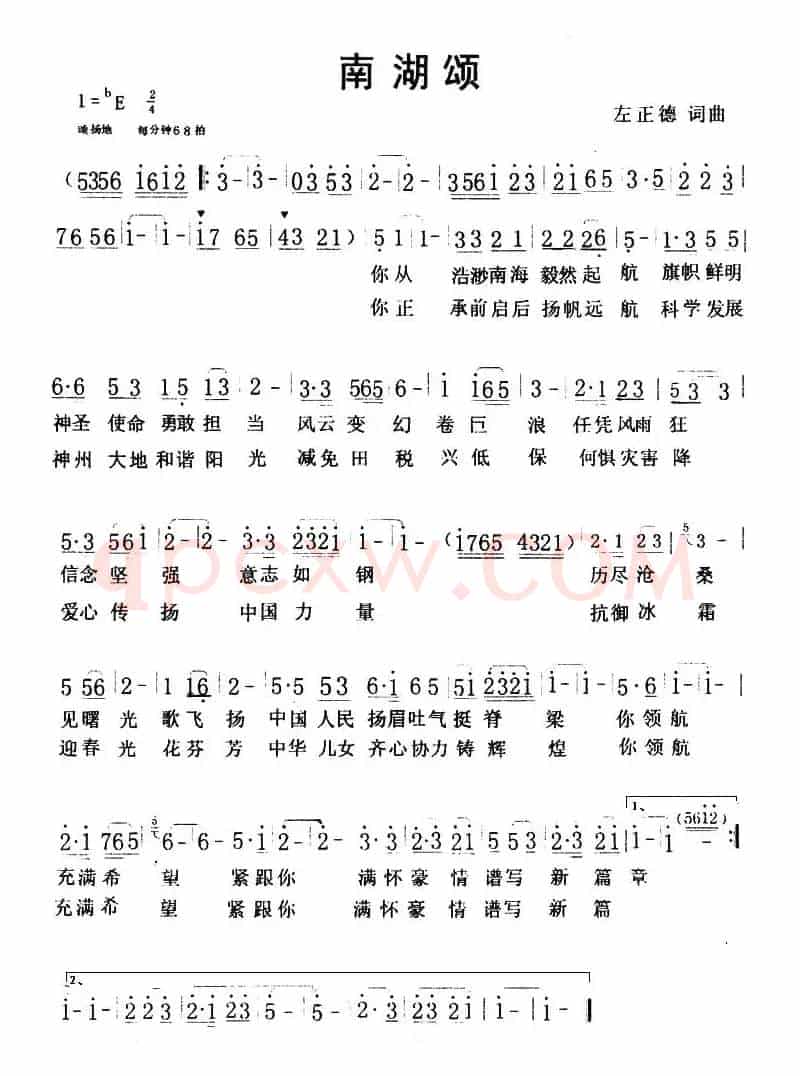 南湖颂
1=bE 2/4
左正德 词曲
每分钟68拍
(5356 1612 |: 3- | 3- | 03 53 | 2- | 2- | 3561 23 | 2165 | 3·5 | 2 23 |
7656 | 1- | 1- | 17 65 | 43 21 ) | 5 1 | 1- | 33 21 | 2 226 | 5- | 1·3 55 |
你从 浩渺南海 毅然起 航 旗帜鲜明
你正 承前启后 扬帆远 航 科学发展
6·6 53 | 15 13 | 2- | 3·3 565 | 6- | 1 165 | 3- | 2·1 23 | 53 3 |
神圣 使命 勇敢担 当 风云变 幻 卷巨 浪 任凭风雨 狂
神州 大地 和谐阳 光 减免田 税 兴低 保 何惧灾害 降
5·3 561 | 2- | 2- | 3·3 2321 | 1- | 1- | (1765 4321) | 2·1 23 | 5 3- |
信念 坚 强 意志如 钢 历尽沧 桑
爱心 传 扬 中国力 量 抗御冰 霜
5 56 | 2- | 1 16 | 2- | 5·5 53 | 6·1 65 | 51 2321 | 1- | 5·3 | 1- | 1- |
见曙 光 歌飞 扬 中国人民 扬眉吐气 挺脊 梁 你领航
迎春 光 花芬 芳 中华儿女 齐心协力 铸辉 煌 你领航
2·1 765 | 5 6- | 6- | 5·1 | 2- | 2- | 3·3 | 2·3 21 | 5 53 | 2·3 21 | 1- | 1、 1 (5612) - :|
充满希 望 紧跟你 满怀豪 情 谱写 新 篇 章
充满希 望 紧跟你 满怀豪 情 谱写 新 篇
2、
1- | 1- | 2 23 | 2·1 23 | 5- | 5- | 2·3 | 2·3 21 | 1- | 1- |